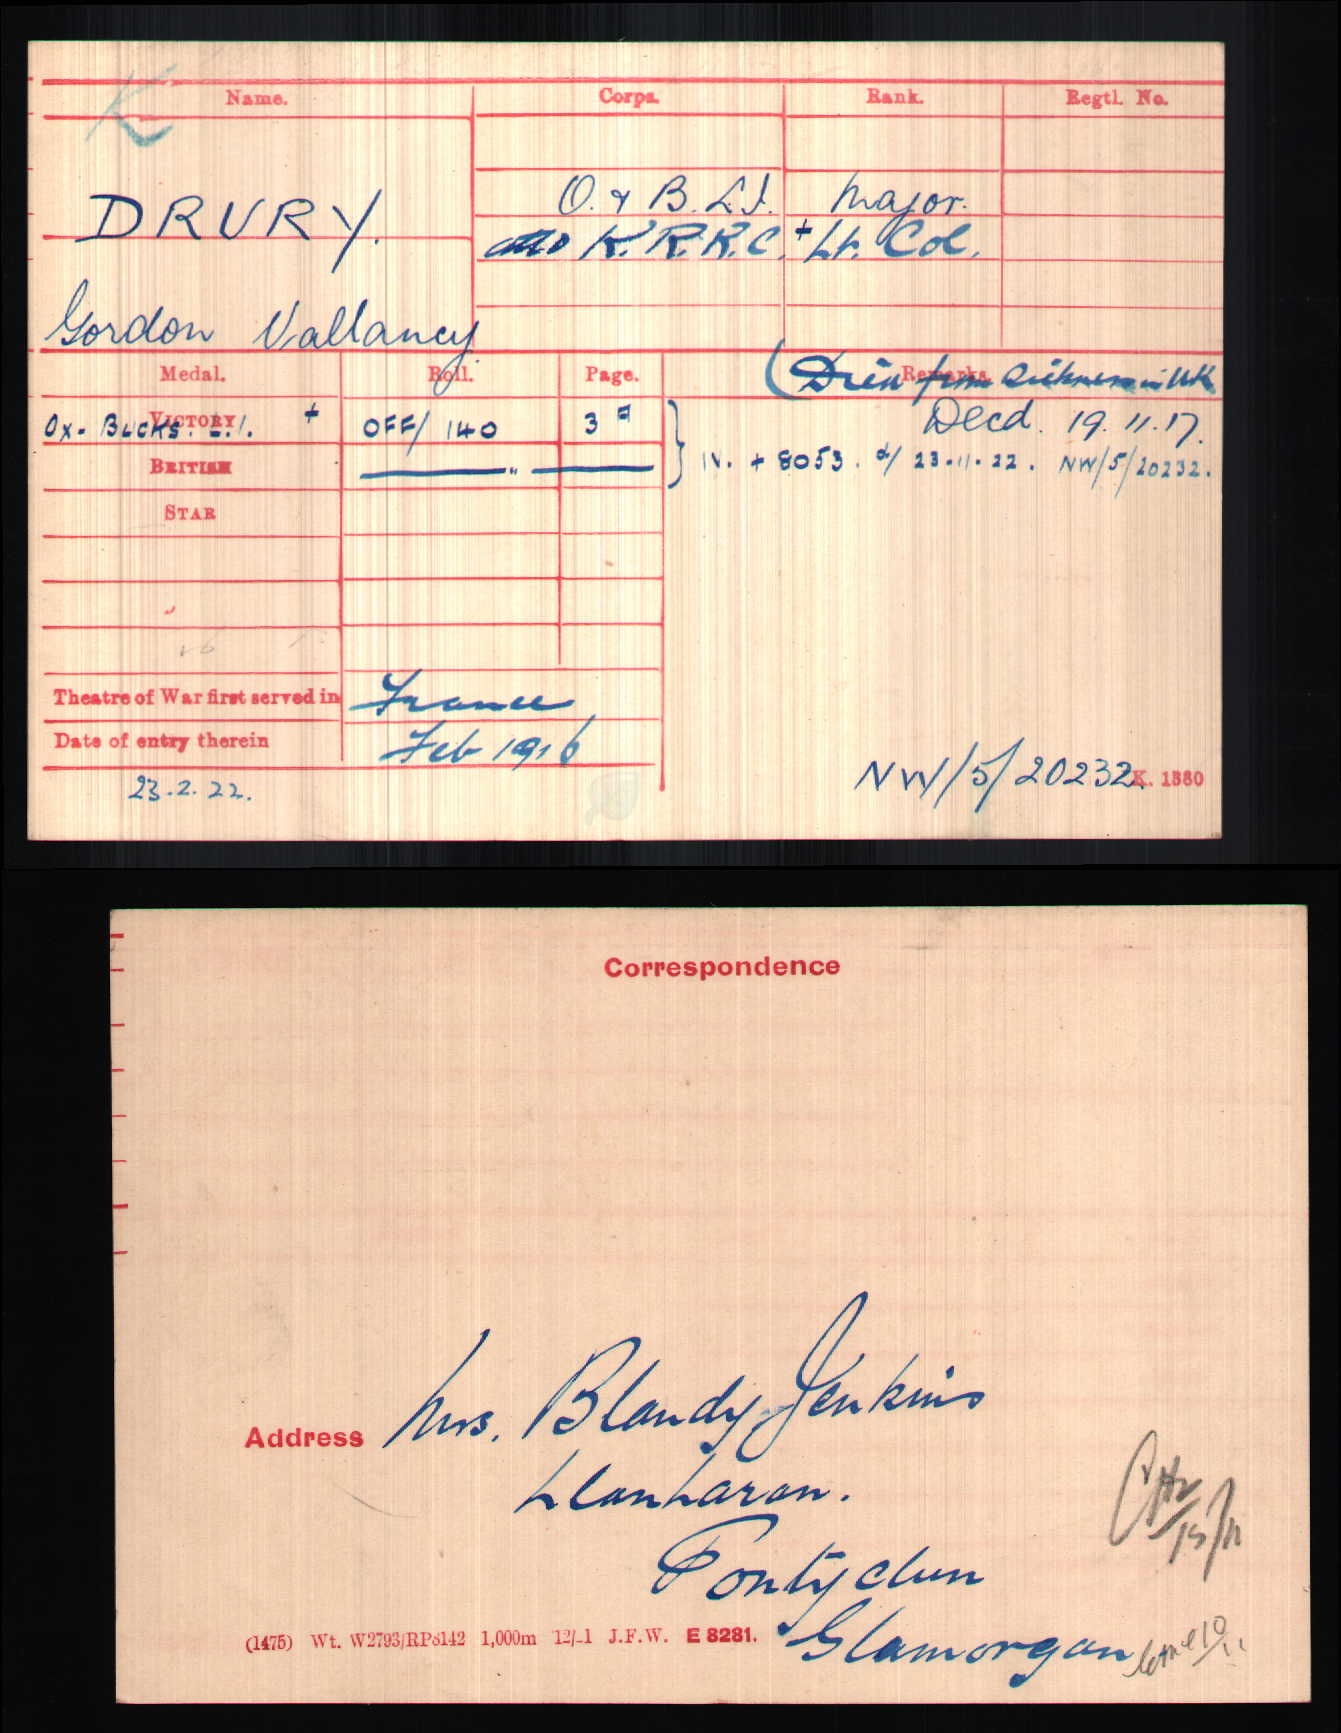 K
Name. Corps. Rank. Regtl. No.
O. & B. L.I. Major.
DRURY. K. R. R. C. + Lt. Col.
Gordon Vallancy
Medal. Roll. Page. Remarks.
(Died from Sickness in UK
VICTORY Ox. Bucks. L.I. + OFF/140 3
Decd. 19.11.17.
BRITISH " } IV. + 8053. d/ 23.11.22. NW/5/20232.
STAR
Theatre of War first served in France
Date of entry therein Feb 1916
23.2.22. NW/5/20232. K. 1380
Correspondence
Address Mrs. Blandy Jenkins
Llanharan.
Pontyclun
Glamorgan
(1475) Wt. W2793/RP8142 1,000m J.F.W. E 8281.